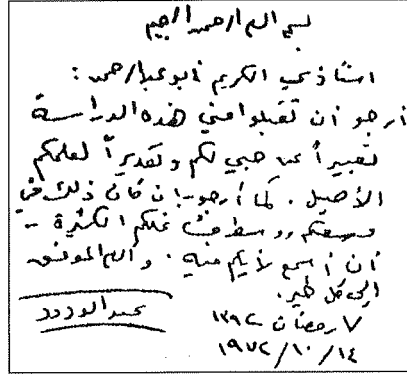 بسم الله الرحمن الرحيم
استاذي الكريم أبو عبد الرحمن :
أرجو أن تقبلوا مني هذه الدراسة
تعبيراً عن حبي لكم وتقديراً لعلمكم
الأصيل . كما أرجو - إن كان ذلك في
وسعكم وسط شغلكم الكثيرة -
أن أسمع رأيكم فيه . والله الموفق
إلى كل خير .
٧ رمضان ١٣٩٢
عبد الودود
١٩٧٢/١٠/١٤